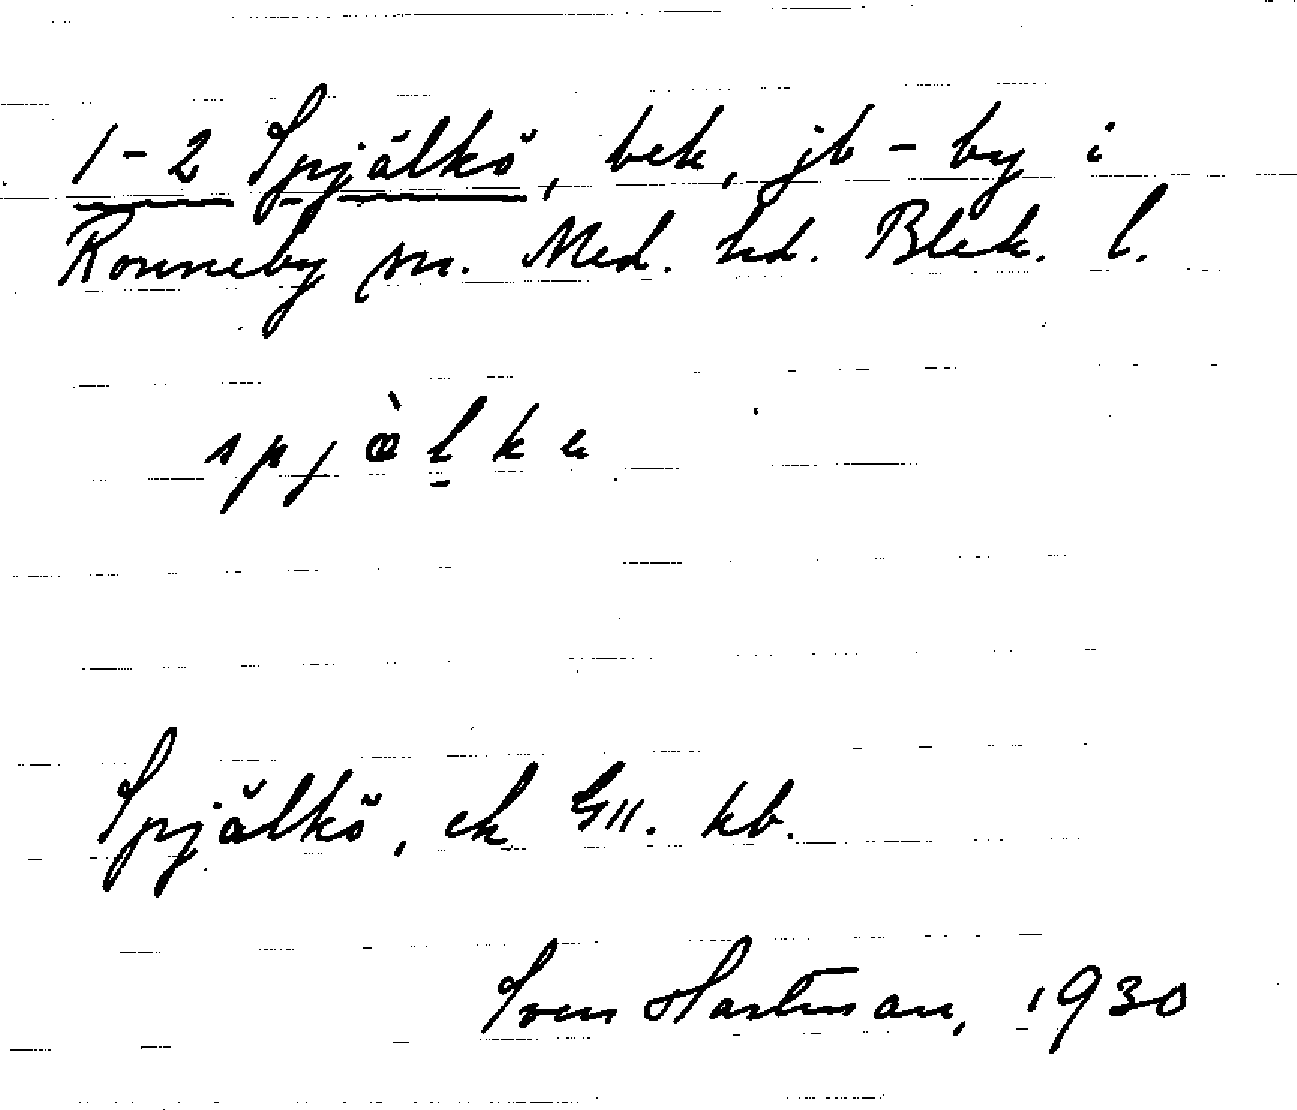 1-2 Spjälkö, bek, jb-by i
Ronneby sn. Med. hd. Blek. l.
spjæ̀l̠kə
Spjälkö, ek GII. kb.
Sven Hartman, 1930